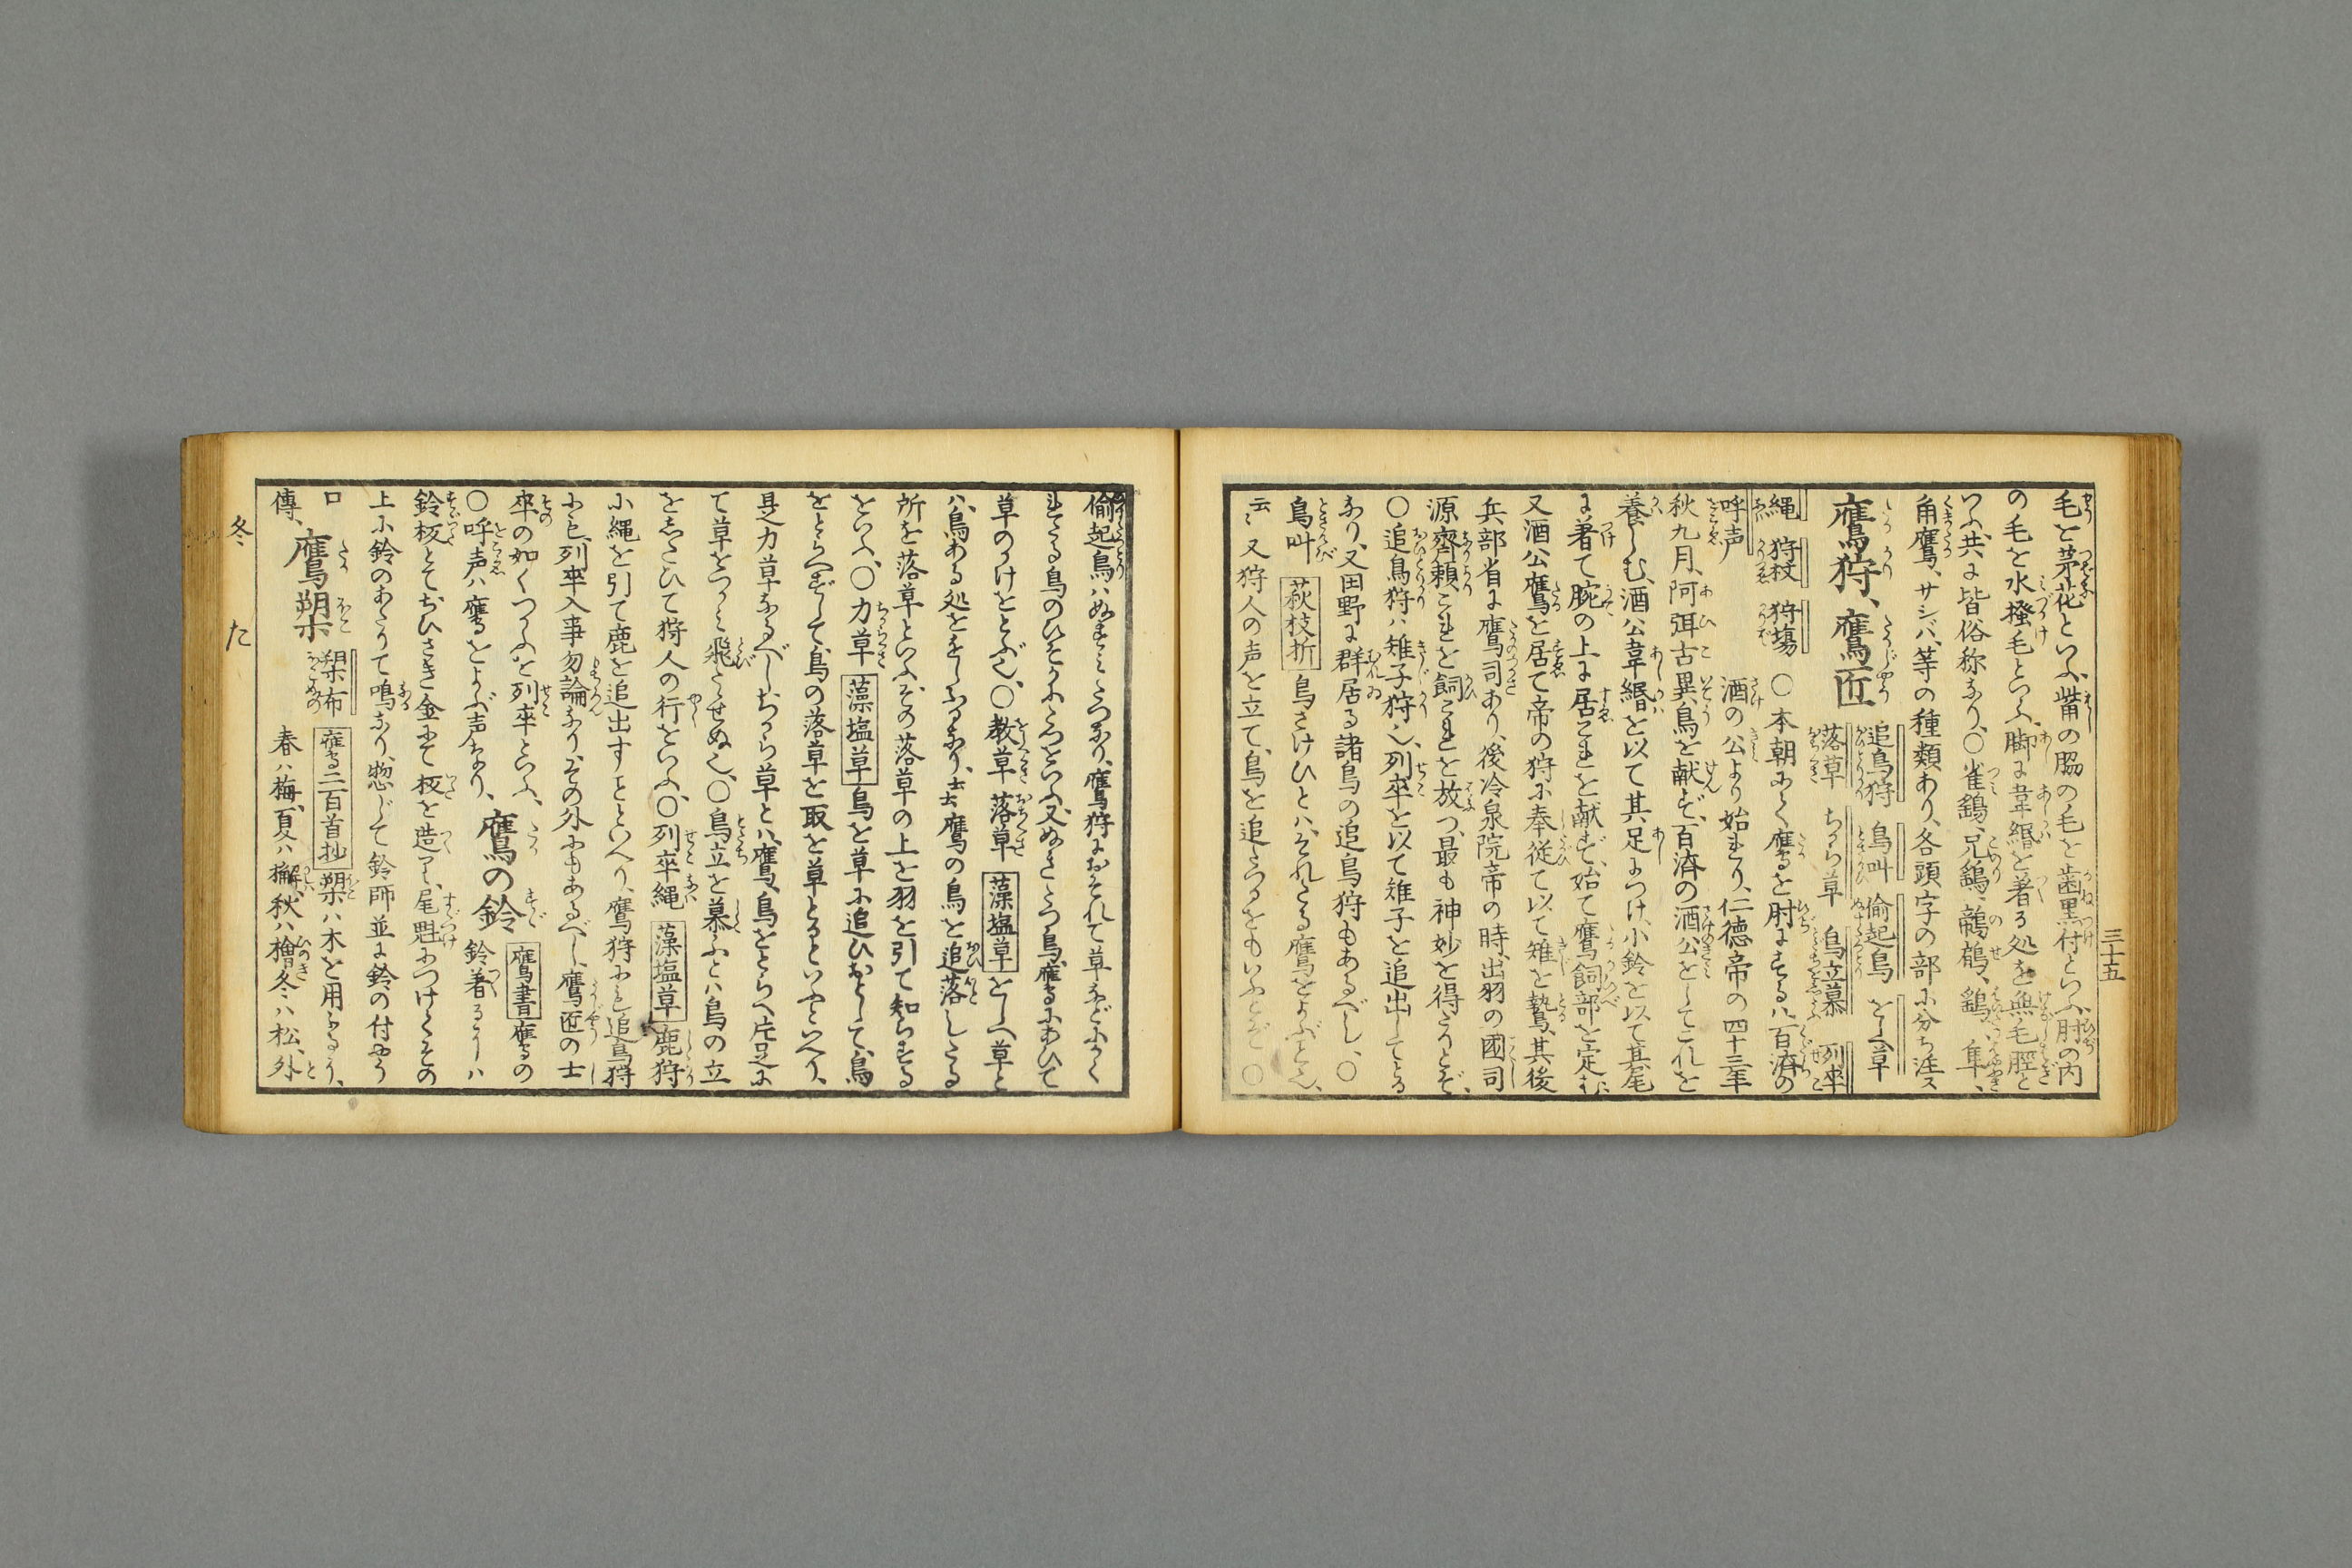 三十五
毛を茅花といふ、觜の脇の毛を歯黒付といふ、肘の内
の毛を水掻毛といふ、脚に韋緡を著る処を無毛脛と
いふ、共に皆俗称なり、〇雀鷂、兄鷂、鸇、鷂、隼、
角鷹、サシバ、等の種類あり、各頭字の部に分ち注ス
鷹狩、鷹匠 追鳥狩 鳥叫 偸起鳥 をしへ草
落草 ちから草 鳥立慕 列卒
縄 狩杖 狩場 〇本朝にて鷹を肘にする八百済の
呼声 酒の公より始まり、仁徳帝の四十三年
秋九月、阿弭古異鳥を献ず、百済の酒公をしてこれを
養しむ、酒公韋緡を以て其足につけ、小鈴を以て其尾
に著て腕の上に居これを献ず、始て鷹飼部を定む
又酒公鷹を居て帝の狩に奉従て以て雉を鷙、其後
兵部省に鷹司あり、後冷泉院帝の時、出羽の國司
源齊頼これを飼これを放つ、最も神妙を得たりとぞ、
〇追鳥狩ハ雉子狩也、列卒を以て雉子を追出してとる
なり、又田野に群居る諸鳥の追鳥狩もあるべし、〇
鳥叫 萩枝折 鳥さけひとハ、それたる鷹をよぶと也、
云〻又狩人の声を立て、鳥を追たつるをもいふとぞ〇
偸起鳥ハぬすミたつなり、鷹狩におそれて草などにかく
れたる鳥のひそかにたつをいふ、又ぬきたつ鳥、鷹にあひて
草のかけをとぶ也、〇教草 落草 藻塩草 をしへ草と
ハ、鳥ある処ををしふるなり、云〻鷹の鳥を追落したる
所を落草といふ、その落草の上を羽を引て知らする
をいふ、〇力草 藻塩草 鳥を草に追ひおとして、鳥
をとらへずして、鳥の落草を取を草とるといふといへり、
是力草なるべし、ちから草とハ、鷹、鳥をとらへ片足に
て草をつかミ飛たゝせぬ也、〇鳥立を慕ふとハ鳥の立
をしたひて狩人の行をいふ、〇列卒縄 藻塩草 鹿狩
に縄を引て鹿を追出すことといへり、鷹狩にも追鳥狩
にも列卒入事勿論なり、その外にもあるべし、鷹匠の士
卒の如くつかふを列卒といふ、 鷹の鈴 鷹書 鷹の
〇呼声ハ鷹をよぶ声なり、 鈴著るにハ
鈴板とてちひさき金にて板を造り、尾魁につけてその
上に鈴のあたりて鳴なり、惣じて鈴師並に鈴の付やう
口 鷹槊 槊布 鷹三百首抄 槊ハ木を用るなり、
傳、 春ハ梅、夏ハ檞、秋ハ檜、冬ハ松、外
冬 た